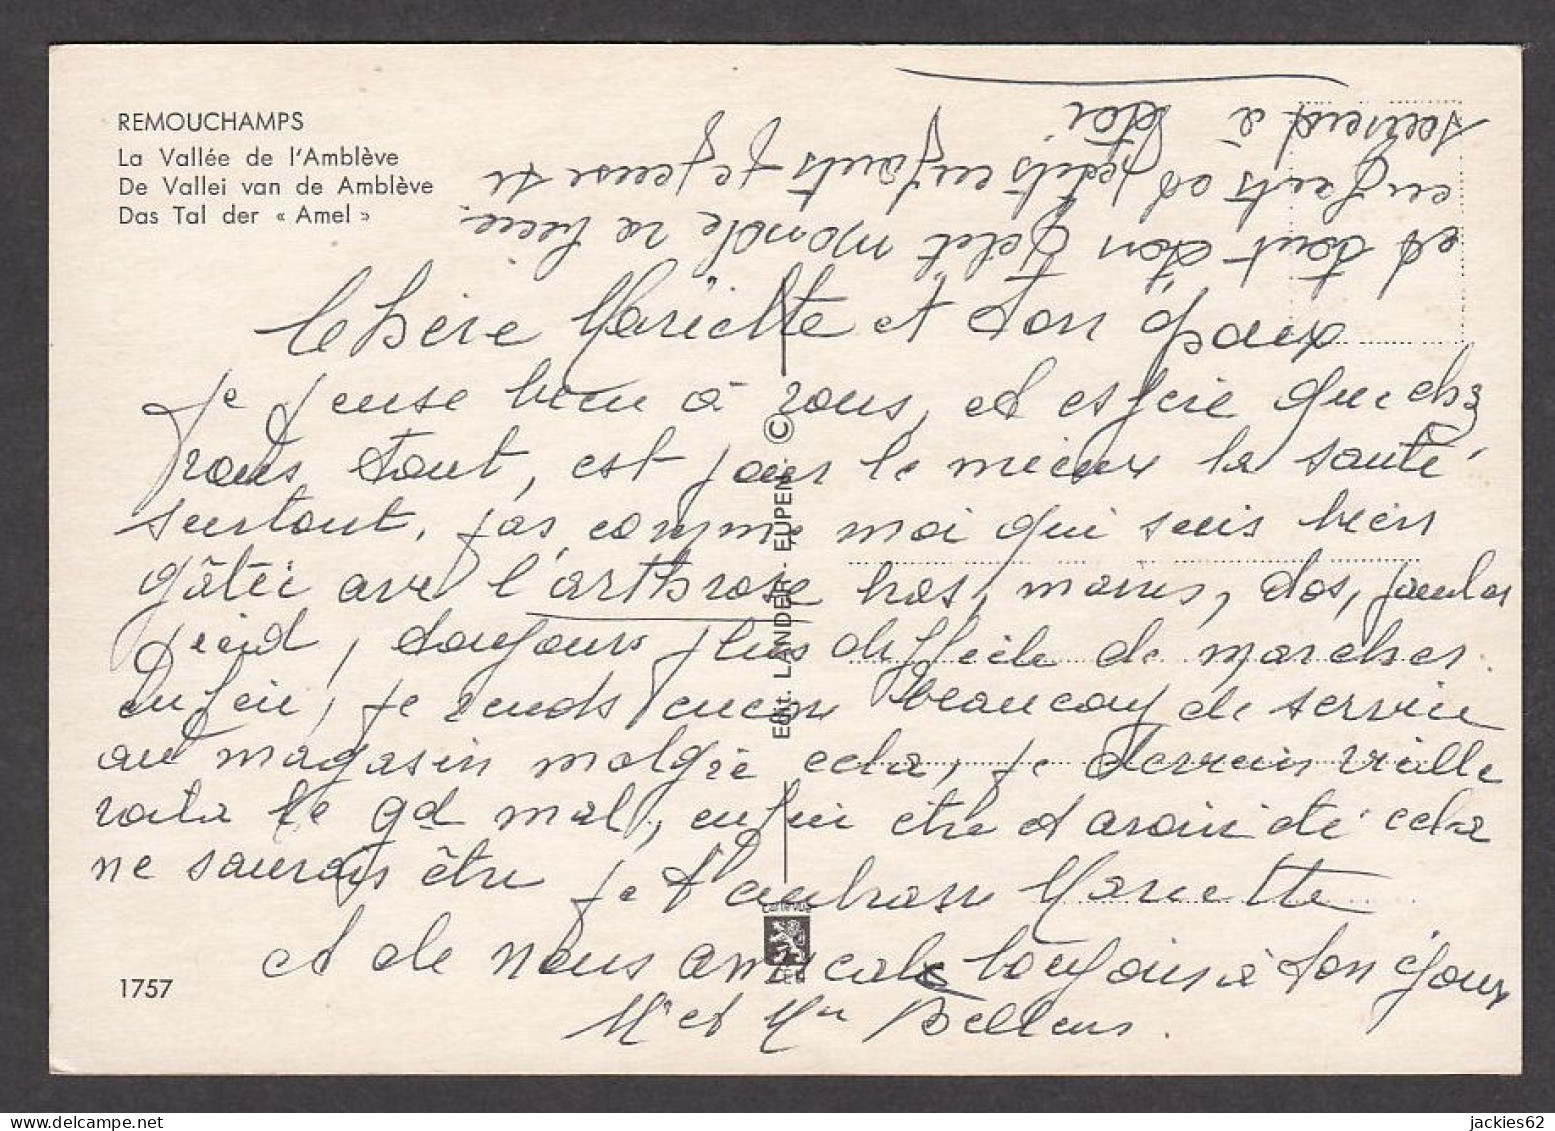 REMOUCHAMPS
La Vallée de l'Amblève
De Vallei van de Amblève
Das Tal der « Amel »
Chère Mariette et ton époux
Je pense bien à vous, et espère que chez
vous tout, est pour le mieux la santé
surtout, pas comme moi qui suis bien
gâtée avec l'arthrose bras, mains, dos, jambes
pied, toujours plus difficile de marcher.
Enfin, je rends encore beaucoup de service
au magasin malgré cela, je deviens vieille
voilà le gd mal, enfin être et avoir été cela
ne saurais être je t'embrasse Mariette
et de nous amicale toujours à ton époux
Mr et Mme Bellens.
et tout ton petit monde va bien.
enfants et petits enfants je pense si
souvent à toi
Edit. LANDER - EUPEN ©
carte vue
1757
jackies62